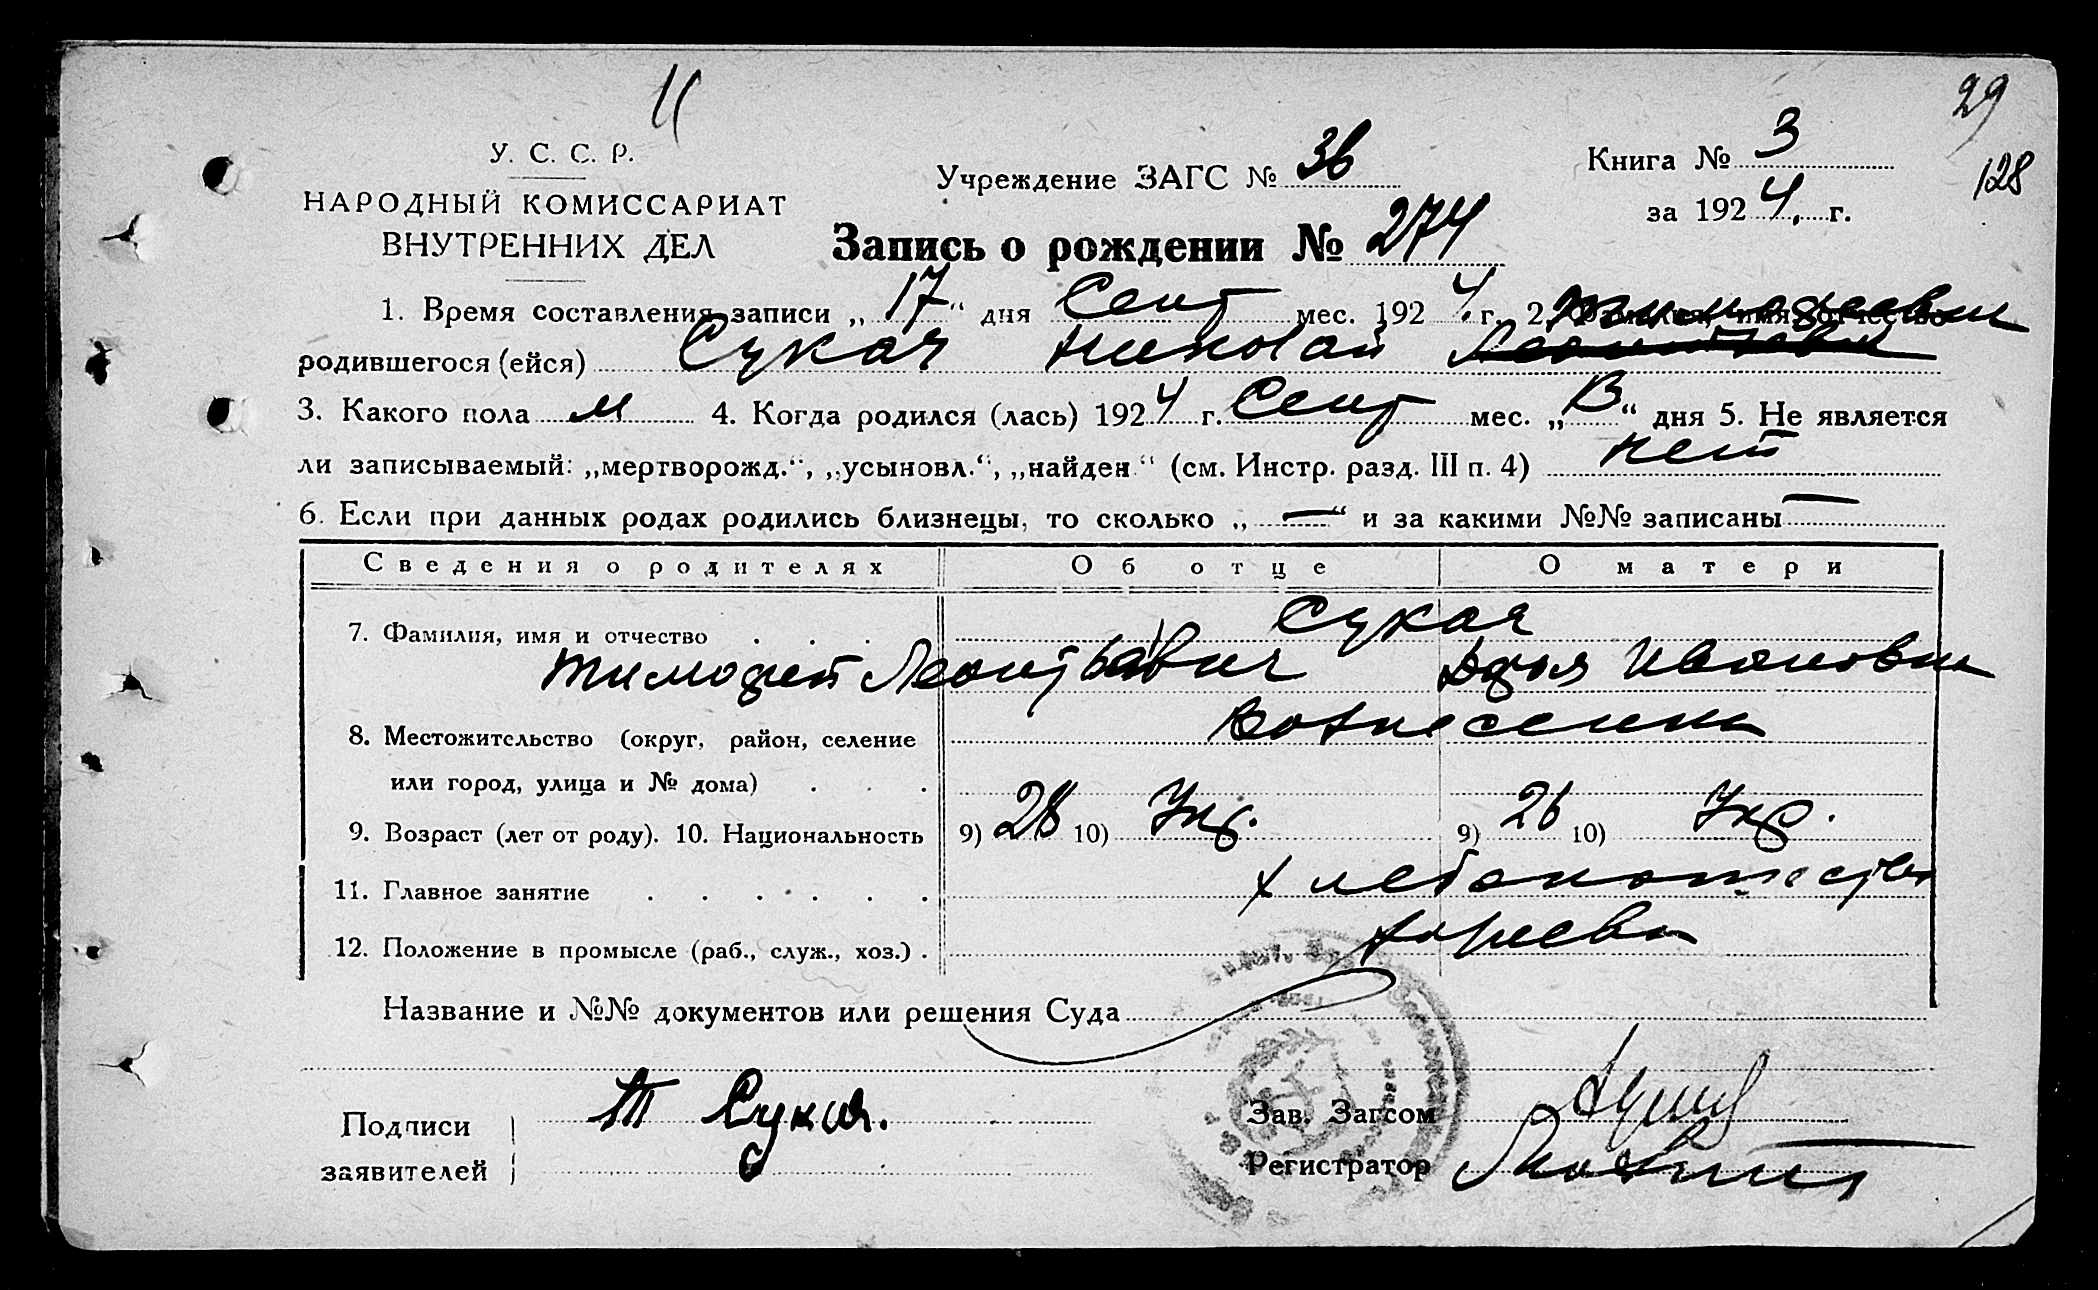 29
128
У. С. С. Р.
НАРОДНЫЙ КОМИССАРИАТ
ВНУТРЕННИХ ДЕЛ
Учреждение ЗАГС № 36
Книга № 3
за 1924 г.
Запись о рождении № 274
1. Время составления записи „17“ дня Сент мес. 1924 г. 2. Фамилия, имя, отчество Тимофеевич
родившегося (ейся) Сукач Николай
3. Какого пола м 4. Когда родился (лась) 1924 г. Сент мес. „13“ дня 5. Не является
ли записываемый: „мертворожд.“, „усыновл.“, „найден“ (см. Инстр. разд. III п. 4) нет
6. Если при данных родах родились близнецы, то сколько „—“ и за какими №№ записаны —
Сведения о родителях Об отце О матери
7. Фамилия, имя и отчество Сукач
Тимофей Ивановн
8. Местожительство (округ, район, селение
или город, улица и № дома)
9. Возраст (лет от роду). 10. Национальность 9) 28 10) Укр. 9) 26 10) Укр.
11. Главное занятие
12. Положение в промысле (раб., служ., хоз.)
Название и №№ документов или решения Суда
Подписи Т Сукач.
заявителей
Зав. Загсом
Регистратор